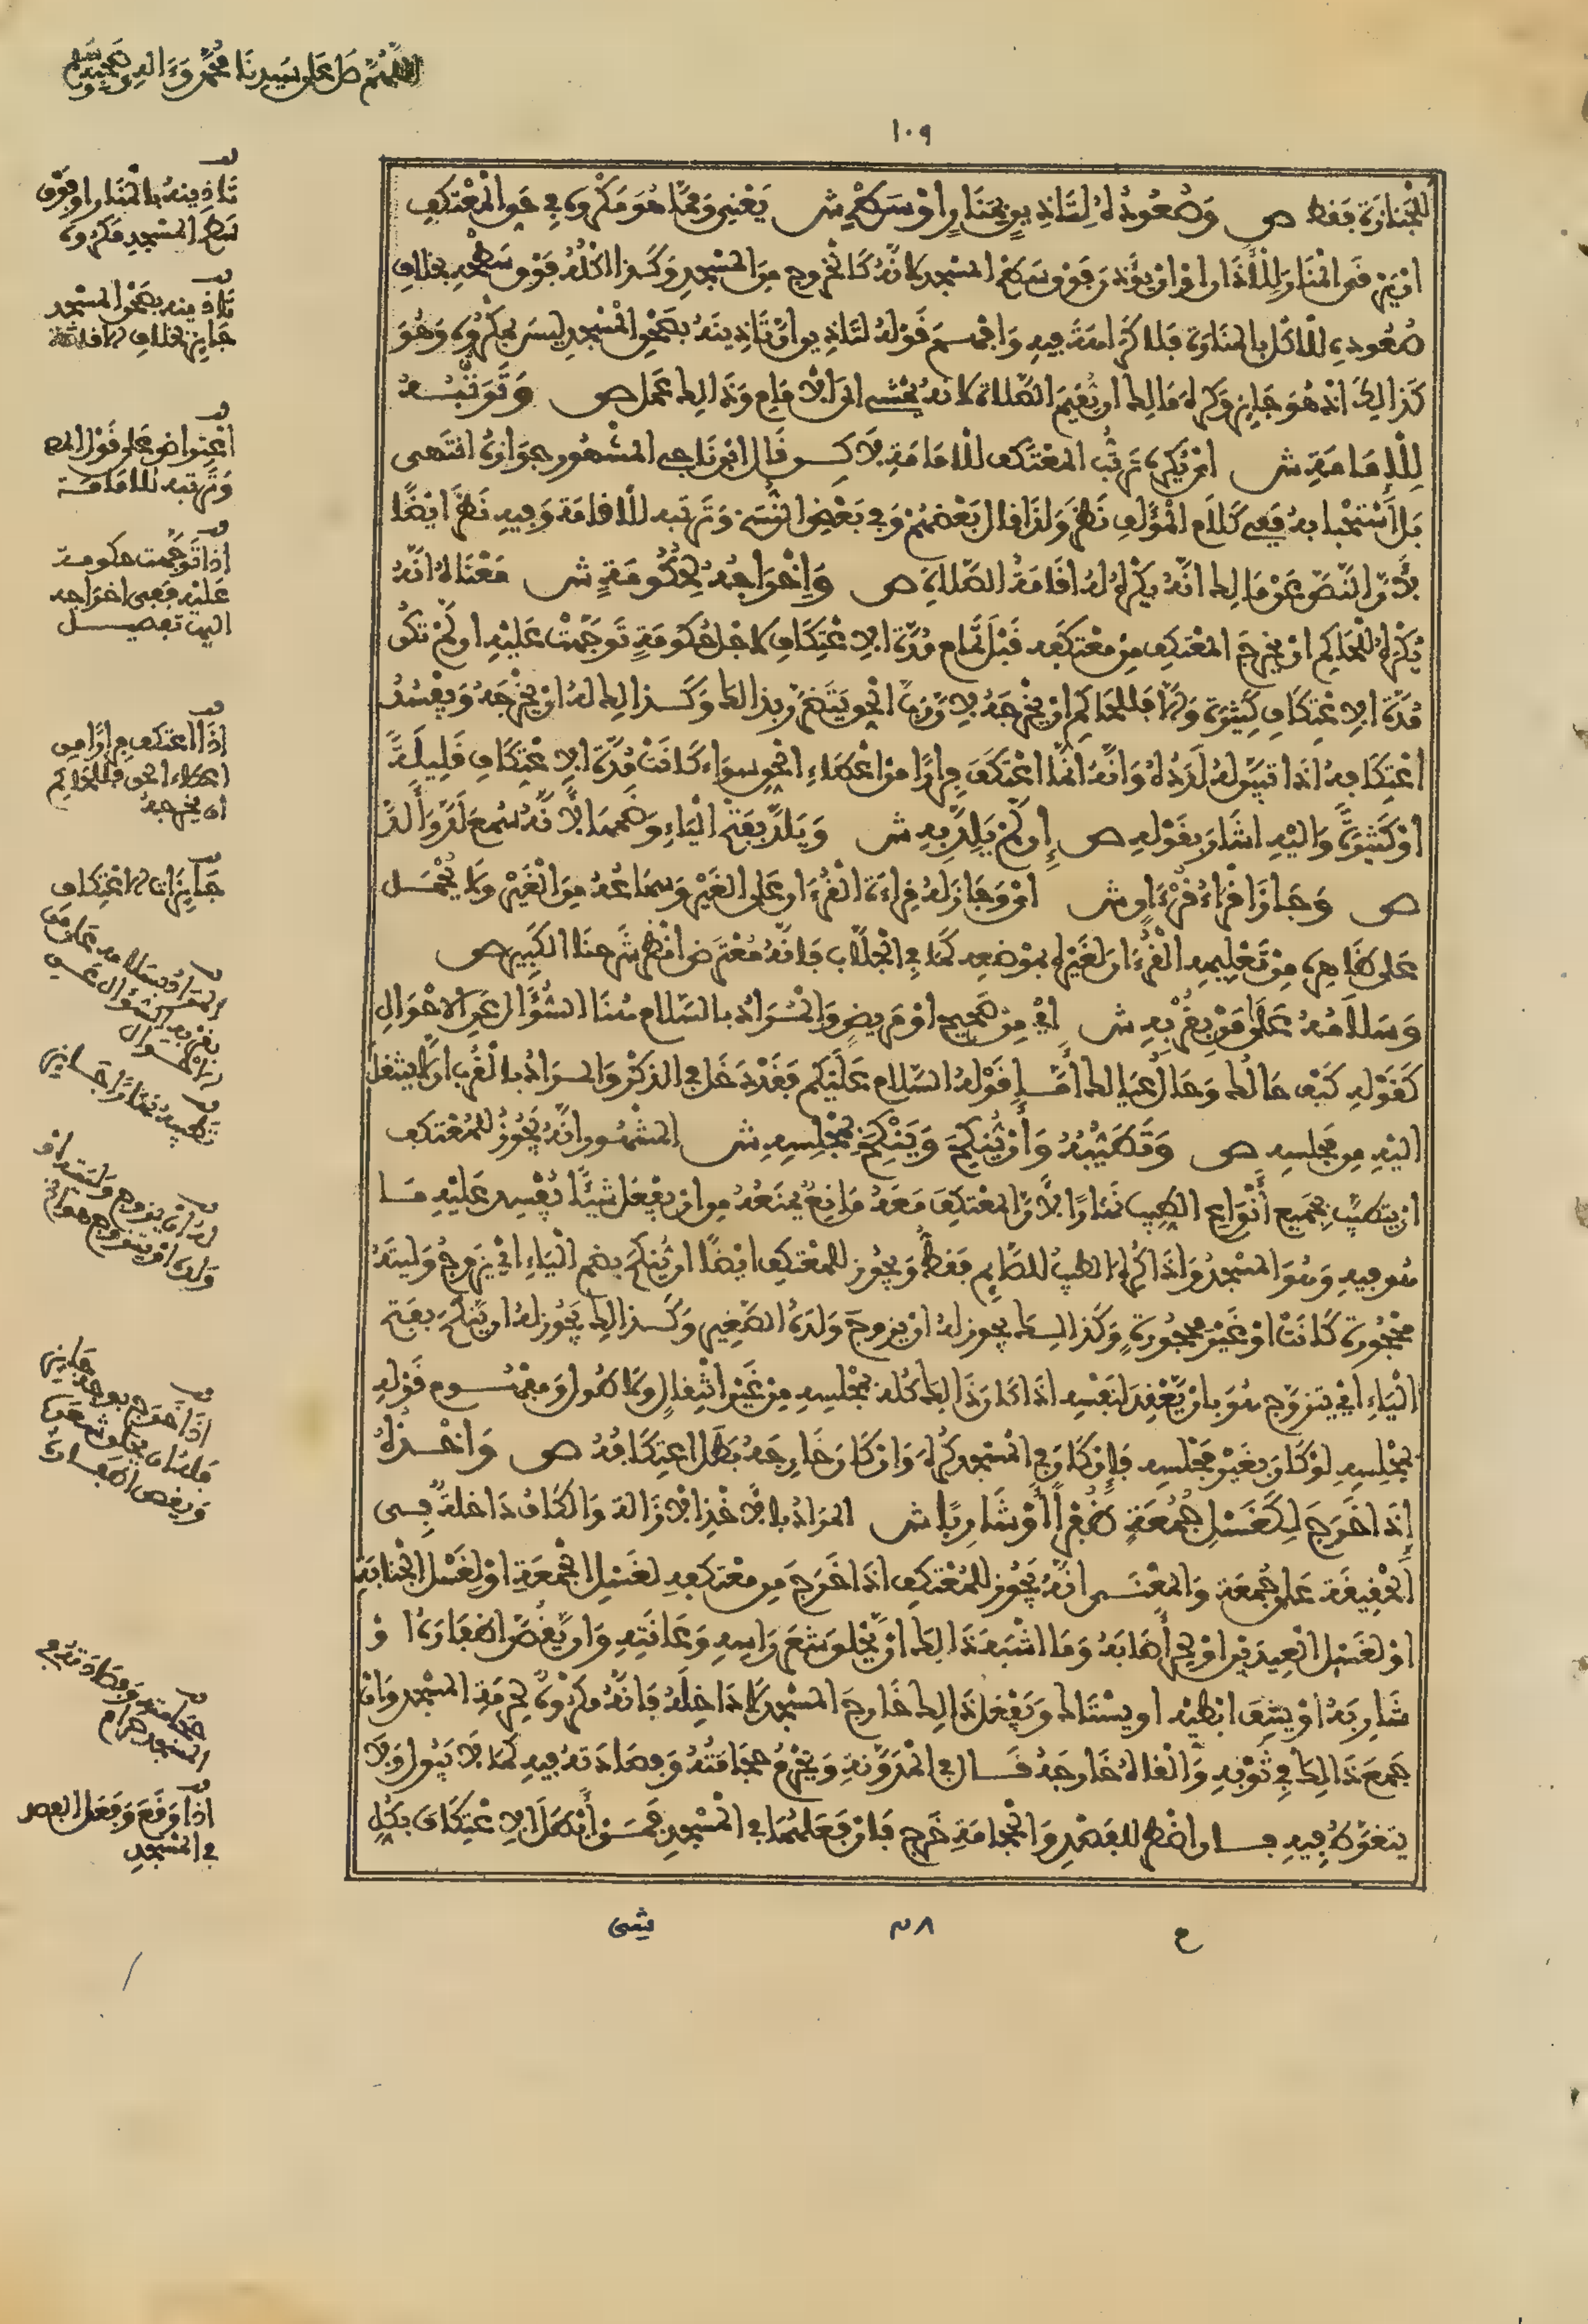 اللهم صل على سيدنا محمد وءاله وصحبه وسلم
١٠٩
للجنازة فقط ص وصعوده لتاذين بمنار او سطح ش يعني ومما هو مكروه في حق المعتكف
ان يرقى المنار للأذان او ان يؤذن فوق سطح المسجد لانه كالخروج من المسجد وكذا اكله فوق سطحه بخلاف
صعوده للاكل بالمنارة فلا كراهة فيه وافهم قوله لتاذين ان تاذينه بصحن المسجد ليس بمكروه وهو
كذالك اذ هو جايز وكره مالك ان يقيم الصلاة لانه يمشى الى الامام وذالك عمل ص وترتبه
للإمامة ش اي يكره ترتب المعتكف للامامة لاكن قال ابن ناجي المشهور جوازه انتهى
بل استحبابه ففي كلام المؤلف نظر ولذا قال بعضهم وفي بعض النسخ وترتبه للاقامة وفيه نظر ايضا
لأن النص عن مالك انه يكره له اقامة الصلاة ص وإخراجه لحكومة ش معناه انه
يكره للحاكم ان يخرج المعتكف من معتكفه قبل تمام مدة الاعتكاف لاجل حكومة توجهت عليه ان لم تكن
مدة الاعتكاف كثيرة والا فللحاكم ان يخرجه لان رب الحق يتضرر بذالك وكذالك له ان يخرجه ويفسد
اعتكافه اذا تبين له لدده وانه انما اعتكف فرارا من اعطاء الحق سواء كانت مدة الاعتكاف قليلة
او كثيرة واليه اشار بقوله ص إن لم يلد به ش ويلد بفتح الياء وضمها لأنه سمع لد وألد
ص وجاز اقراء قرءان ش اي وجاز له قراءة القرءان على الغير وسماعه من الغير ولا يحمل
على ظاهره من تعليمه القرءان لغيره بموضعه كما في الجلاب فانه معترض انظر شرحنا الكبير ص
وسلامه على من بقربه ش اي من صحيح او مريض والمراد بالسلام هنا السؤال عن الاحوال
كقوله كيف حالك وحال عيالك أما قوله السلام عليكم فقد دخل في الذكر والمراد بالقرب ان لا ينتقل
اليه من مجلسه ص وتطيبه وأن ينكح وينكح بمجلسه ش المشهور انه يجوز للمعتكف
ان يتطيب بجميع أنواع الطيب نهارا لأن المعتكف معه مانع يمنعه من ان يفعل شيئا يفسد عليه ما
هو فيه وهو المسجد وانما كره الطيب للصايم فقط ويجوز للمعتكف ايضا ان ينكح بضم الياء اي يزوج وليته
محجورة كانت او غير محجورة وكذالك يجوز له ان يزوج ولده الصغير وكذالك يجوز له ان ينكح بفتح
الياء اي يتزوج هو بان يعقد لنفسه اذا كان ذالك كله بمجلسه من غير انتقال ولا طول ومفهوم قوله
بمجلسه لو كان بغير مجلسه فإن كان في المسجد كره وان كان خارجه بطل اعتكافه ص واخذه
إذا خرج لكغسل جمعة ظفرا أو شاربا ش المراد بالأخذ الازالة والكاف داخلة في
الحقيقة على جمعة والمعنى انه يجوز للمعتكف اذا خرج من معتكفه لغسل الجمعة او لغسل الجنابة
او لغسل العيدين او لحر أصابه وما اشبه ذالك ان يحلق شعر راسه وعانته وان يقص اظفاره او
شاربه او ينتف ابطيه او يستاك ويفعل ذالك خارج المسجد لا داخله فانه مكروه لحرمة المسجد وان
جمع ذالك في ثوبه والقاه خارجه قال في المدونة ويحرم حجامته وفصادته فيه كما لا يبول ولا
يتغوط فيه فان اضطر للفصد والحجامة خرج فان فعلهما في المسجد فمن أبطل الاعتكاف بكل
تاذينه بالمنار او فوق
سطح المسجد مكروه
تاذينه بصحن المسجد
جايز بخلاف الاقامة
اعتراض على قول المص
وترتبه للامامة
اذا توجهت حكومة
عليه ففي اخراجه
اليها تفصيل
إذا اعتكف فرارا من
اعطاء الحق فللحاكم
ان يخرجه
جايزات الاعتكاف
المراد بسلامه على من
بقربه السؤال عن
الاحوال
تطيبه نهارا جايز
له ان يزوج وليته او
ولده او يتزوج هو
اذا خرج بوجه جايز
فله ان يحلق شعره
ويقص اظفاره
حجامته وفصادته في
المسجد حرام
اذا وقع وفعل الفصد
في المسجد
شى